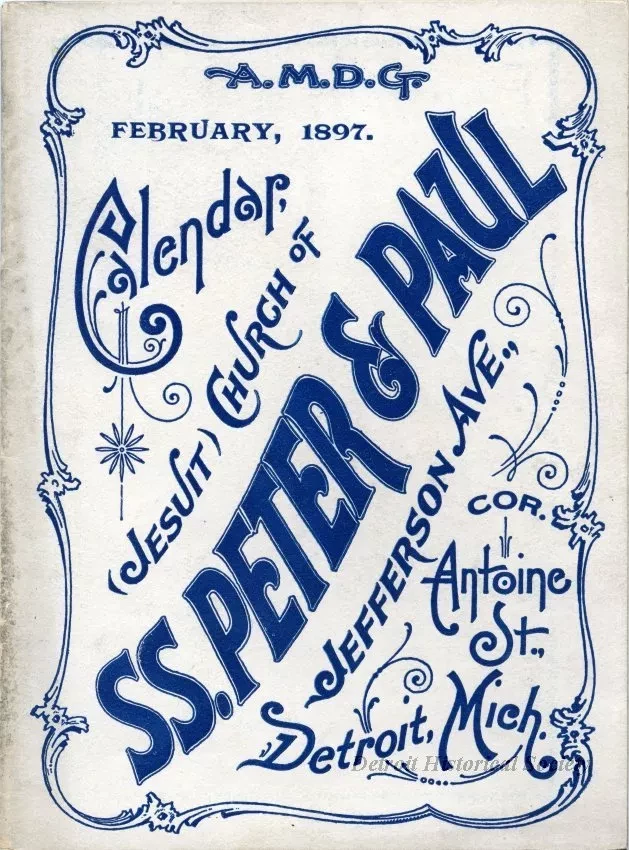 A.M.D.G.
FEBRUARY, 1897.
Calendar,
(JESUIT) CHURCH OF
SS. PETER & PAUL
JEFFERSON AVE.,
COR.
Antoine
St.,
Detroit, Mich.
Detroit Historical Society